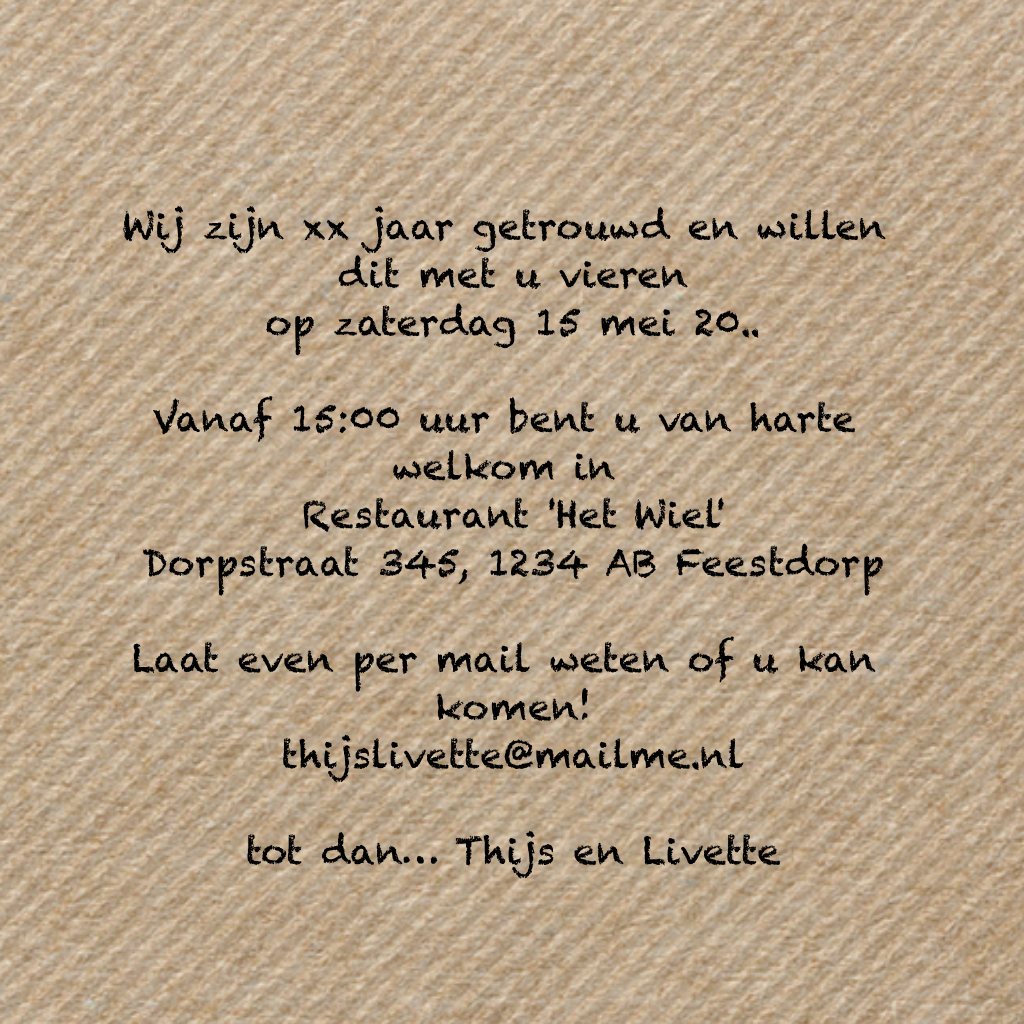 Wij zijn xx jaar getrouwd en willen
dit met u vieren
op zaterdag 15 mei 20..
Vanaf 15:00 uur bent u van harte
welkom in
Restaurant 'Het Wiel'
Dorpstraat 345, 1234 AB Feestdorp
Laat even per mail weten of u kan
komen!
thijslivette@mailme.nl
tot dan... Thijs en Livette